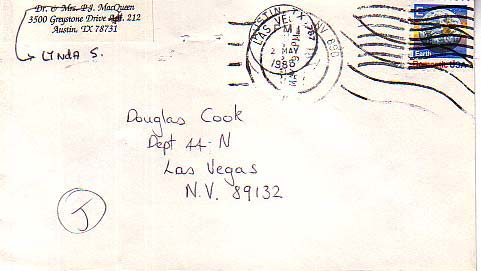 Dr. & Mrs. P.J. MacQueen
3500 Greystone Drive Apt. 212
Austin, TX 78731
LYNDA S.
AUSTIN, TX 787
LAS VEGAS NV 890
PM
2 MAY
1988
Earth
Domestic USA
Douglas Cook
Dept 44-N
Las Vegas
N.V. 89132
J